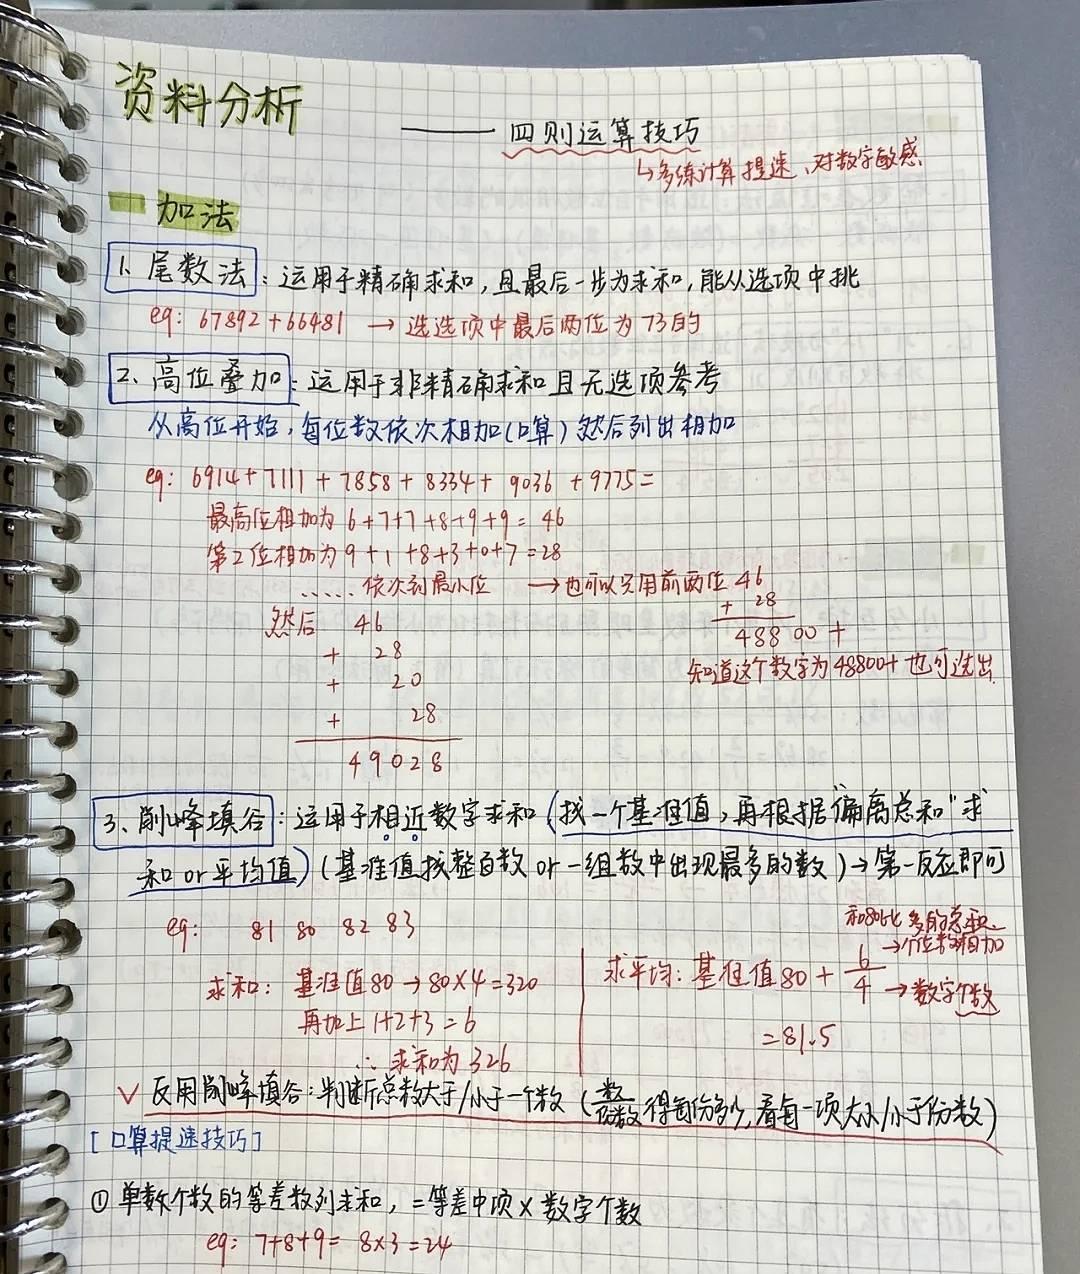 资料分析
—— 四则运算技巧
↳多练计算提速、对数字敏感
加法
1、尾数法：运用于精确求和，且最后一步为求和，能从选项中挑
eg: 67892+66481 → 选选项中最后两位为73的
2、高位叠加：运用于非精确求和且无选项参考
从高位开始，每位数依次相加(口算)然后列出相加
eg: 6914+7111+7858+8334+9036+9775=
最高位相加为 6+7+7+8+9+9=46
第2位相加为 9+1+8+3+0+7=28
……依次到最小位 →也可以只用前两位 46
+ 28
48800+
知道这个数字为48800+也可选出
然后 46
+ 28
+ 20
+ 28
49028
3、削峰填谷：运用于相近数字求和(找一个基准值，再根据"偏离总和"求
和or平均值)(基准值找整百数or一组数中出现最多的数)→第一反应即可
eg: 81 80 82 83
求和：基准值80→80×4=320
再加上1+2+3=6
∴求和为326
和80比多的总和
→个位数相加
求平均：基准值80+6/4→数字个数
=81.5
√ 反用削峰填谷：判断总数大于/小于一个数(数/份数得每份多少,看每一项大小/小于份数)
[口算提速技巧]
① 单数个数的等差数列求和，=等差中项×数字个数
eg: 7+8+9=8×3=24